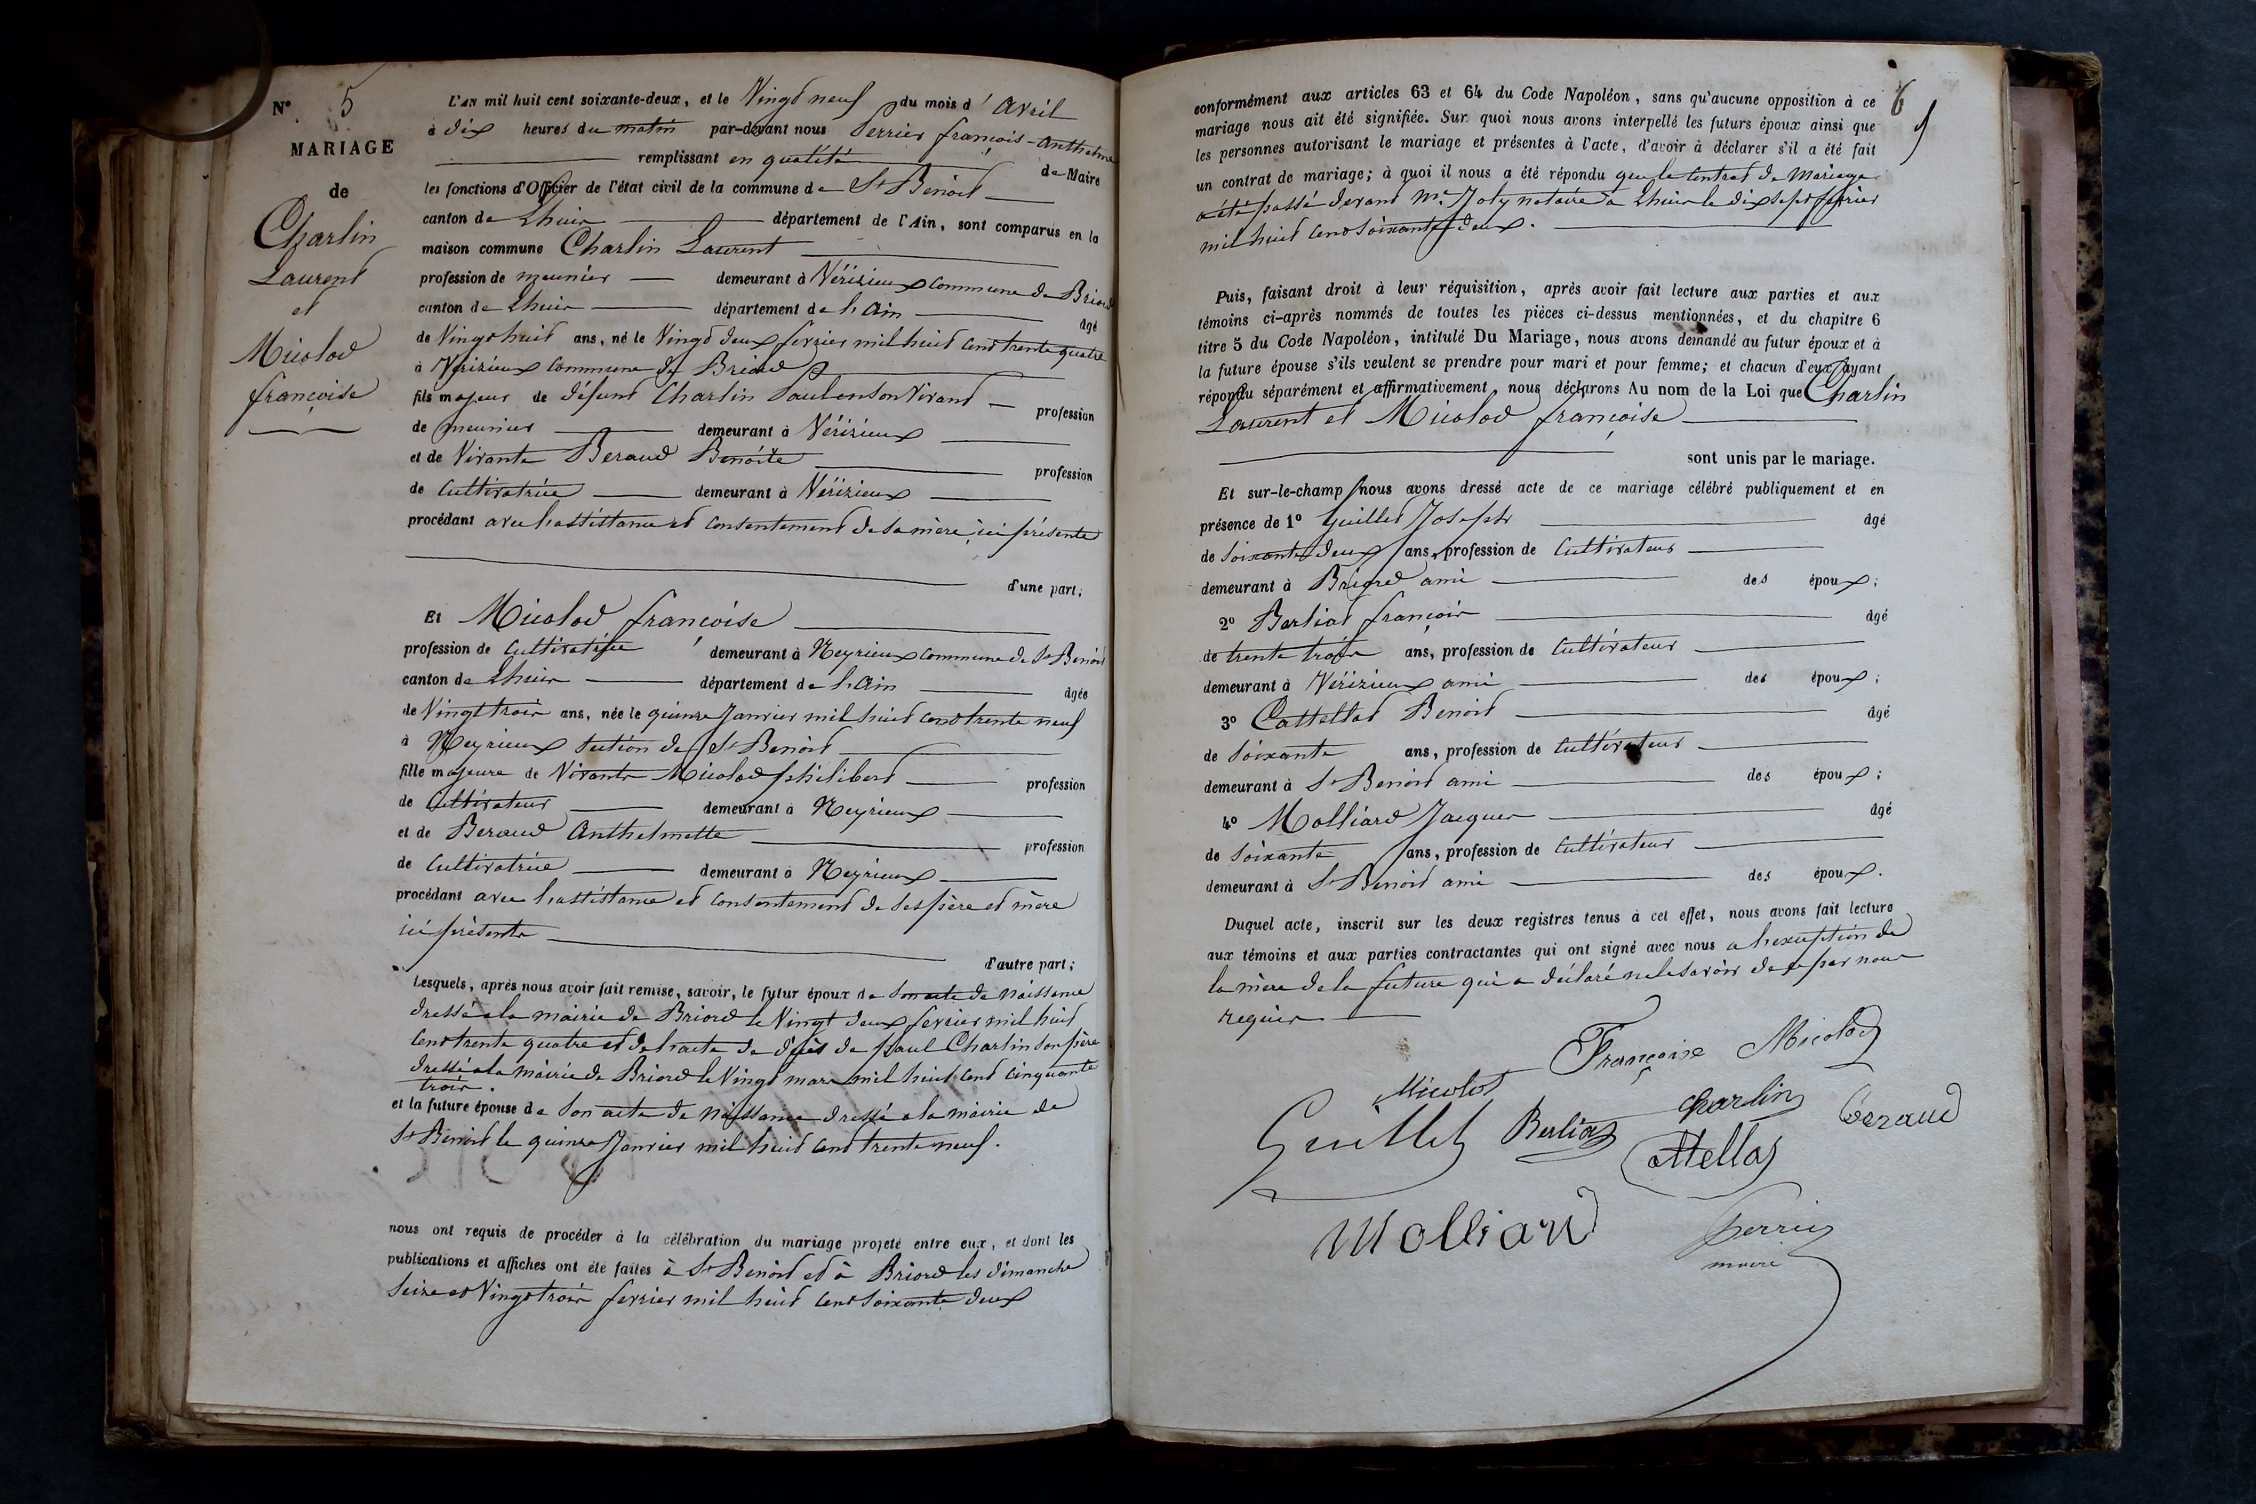 N° 5
MARIAGE
de
Charlin
Laurent
et
Micolod
françoise
L'AN mil huit cent soixante-deux, et le Vingt neuf du mois d'avril
à dix heures du matin par-devant nous Perrier françois-anthelme
remplissant en qualité de Maire
les fonctions d'Officier de l'état civil de la commune de St Benoit
canton de Lhuis département de l'Ain, sont comparus en la
maison commune Charlin Laurent
profession de meunier demeurant à Vérizieux commune de Briord
canton de Lhuis département de l'ain âgé
de Vingt huit ans, né le Vingt deux fevrier mil huit cent trente quatre
à Vérizieux commune de Briord
fils majeur de défunt Charlin Paul en son Vivant profession
de meunier demeurant à Vérizieux
et de Vivante Beraud Benoite profession
de Cultivatrice demeurant à Vérizieux
procédant avec l'assistance et consentement de sa mère ici présente
d'une part;
Et Micolod françoise
profession de Cultivatrice demeurant à Neyrieux commune de St Benoit
canton de Lhuis département de l'ain âgée
de Vingt trois ans, née le quinze Janvier mil huit cent trente neuf
à Neyrieux section de St Benoit
fille majeure de Vivants Micolod philibert profession
de Cultivateur demeurant à Neyrieux
et de Beraud Anthelmette profession
de Cultivatrice demeurant à Neyrieux
procédant avec l'assistance et consentement de ses père et mère
ici présents
d'autre part;
Lesquels, après nous avoir fait remise, savoir, le futur époux de son acte de naissance
dressé a la mairie de Briord le Vingt deux fevrier mil huit
cent trente quatre et de l'acte de décès de paul Charlin son père
dressé a la mairie de Briord le Vingt mars mil huit cent cinquante
trois.
et la future épouse de son acte de naissance dressé a la mairie de
St Benoit le quinze Janvier mil huit cent trente neuf.
nous ont requis de procéder à la célébration du mariage projeté entre eux, et dont les
publications et affiches ont été faites à St Benoit et à Briord les dimanche
seize et Vingt trois fevrier mil huit cent soixante deux
6
conformément aux articles 63 et 64 du Code Napoléon, sans qu'aucune opposition à ce
mariage nous ait été signifiée. Sur quoi nous avons interpellé les futurs époux ainsi que
les personnes autorisant le mariage et présentes à l'acte, d'avoir à déclarer s'il a été fait
un contrat de mariage; à quoi il nous a été répondu que le Contrat de Mariage
a été passé devant Me Joly notaire a Lhuis le dix sept fevrier
mil huit cent soixante deux.
Puis, faisant droit à leur réquisition, après avoir fait lecture aux parties et aux
témoins ci-après nommés de toutes les pièces ci-dessus mentionnées, et du chapitre 6
titre 5 du Code Napoléon, intitulé Du Mariage, nous avons demandé au futur époux et à
la future épouse s'ils veulent se prendre pour mari et pour femme; et chacun d'eux ayant
répondu séparément et affirmativement, nous déclarons Au nom de la Loi que Charlin
Laurent et Micolod françoise
sont unis par le mariage.
Et sur-le-champ nous avons dressé acte de ce mariage célébré publiquement et en
présence de 1° Guillet Joseph âgé
de soixante deux ans, profession de Cultivateur
demeurant à Briord ami des époux;
2° Berliat françois âgé
de trente trois ans, profession de Cultivateur
demeurant à Vérizieux ami des époux;
3° Cattellat Benoit âgé
de soixante ans, profession de Cultivateur
demeurant à St Benoit ami des époux;
4° Molliard Jacques âgé
de soixante ans, profession de Cultivateur
demeurant à St Benoit ami des époux.
Duquel acte, inscrit sur les deux registres tenus à cet effet, nous avons fait lecture
aux témoins et aux parties contractantes qui ont signé avec nous a l'exception de
la mère de la future qui a déclaré ne le savoir de ce par nous
requis
Françoise Micolod
Micolot Charlin Beraud
Guillet Berliat Cattellat
Molliard Perrier
maire